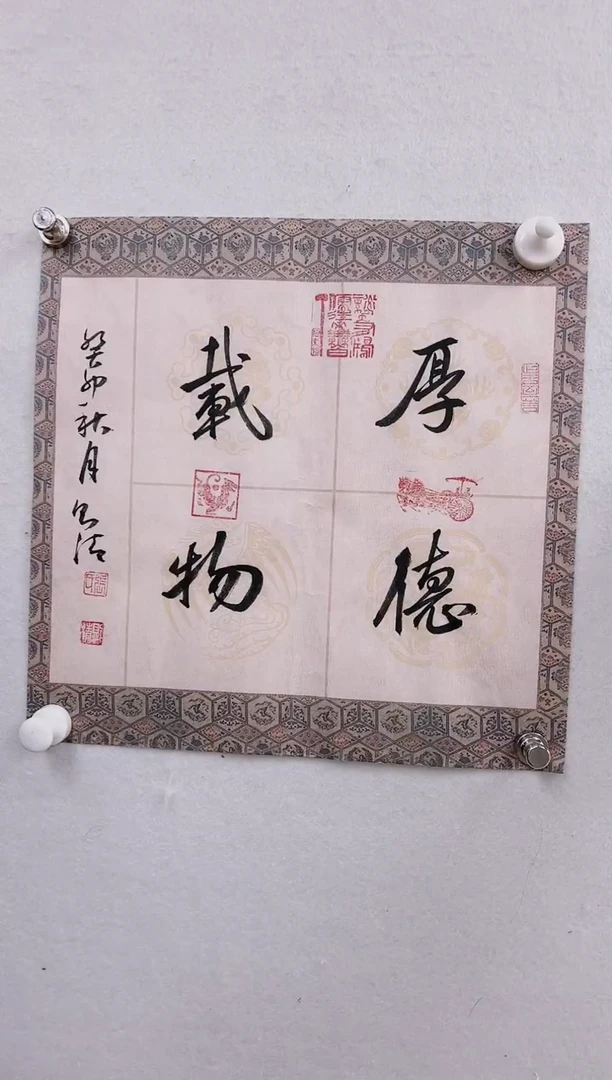 厚德
載物
癸卯秋月